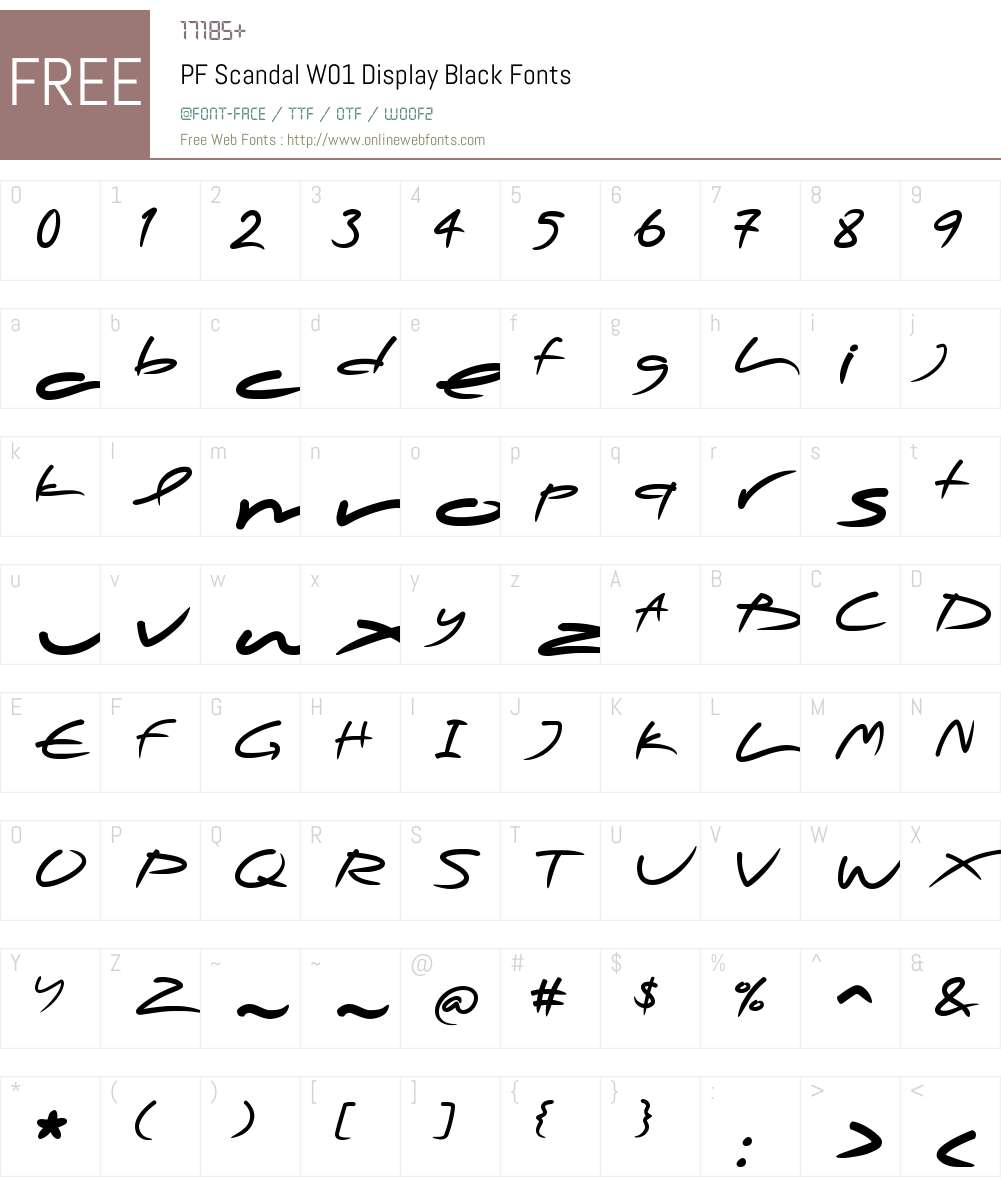 FREE
17185+
PF Scandal W01 Display Black Fonts
@FONT-FACE / TTF / OTF / WOOF2
Free Web Fonts : http://www.onlinewebfonts.com
0 1 2 3 4 5 6 7 8 9
0 1 2 3 4 5 6 7 8 9
a b c d e f g h i j
a b c d e f g h i j
k l m n o p q r s t
k l m n o p q r s t
u v w x y z A B C D
u v w x y z A B C D
E F G H I J K L M N
E F G H I J K L M N
O P Q R S T U V W X
O P Q R S T U V W X
Y Z ~ ~ @ # $ % ^ &
Y Z ~ ~ @ # $ % ^ &
* ( ) [ ] { } : > <
* ( ) [ ] { } : > <